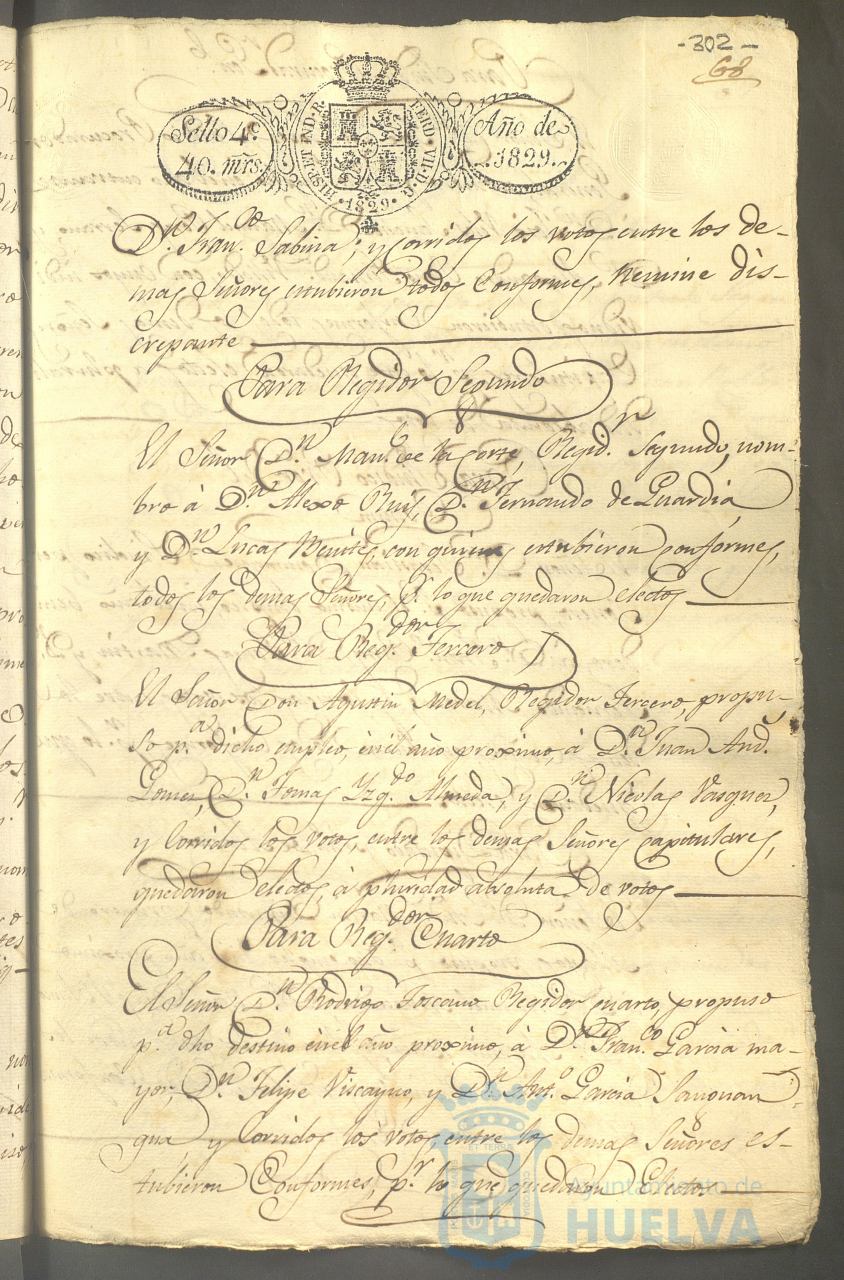 -302-
68
Sello 4º
40. mrs.
HISP. ET IND. R. FERD. VII. D. G. 1829.
Año de
1829.
Dⁿ. Franᶜᵒ Sabina; y corridos los votos entre los de-
mas Señores estubieron todos Conformes, Nemine dis-
crepante
Para Regidor Segundo
El Señor Dⁿ Manˡ. de la Corte, Regidʳ. Segundo, nom-
bro á Dⁿ. Alexo Ruiz, Dⁿ. Fernando de Guardia,
y Dⁿ. Lucas Benites, con quienes estubieron conformes,
todos los demas Señores, pʳ. lo que quedaron electos
Para Regᵈᵒʳ. Tercero
El Señor Don Agustin Medel, Regidor Tercero, propu-
so pᵃ. dicho empleo, en el año proximo, á Dⁿ. Juan Andˢ.
Gomez, Dⁿ Tomas Yzqᵈᵒ. Almeda, y Dⁿ. Nicolas Vasquez,
y Corridos los votos, entre los demas Señores capitulares,
quedaron electos, á pluridad absoluta de votos
Para Regᵈᵒʳ. Cuarto
El Señor Dⁿ Rodrigo Toscano Regidor cuarto, propuso
pᵃ. dho destino en el año proximo, á Dⁿ. Franᶜᵒ Garcia ma-
yor, Dⁿ Felipe Viscayno, y Dⁿ. Antᵒ. Garcia
gua, y Corridos los votos, entre los demas Señores es-
tubieron Conformes, pʳ. lo que quedaron Electos
Ayuntamiento de
HUELVA